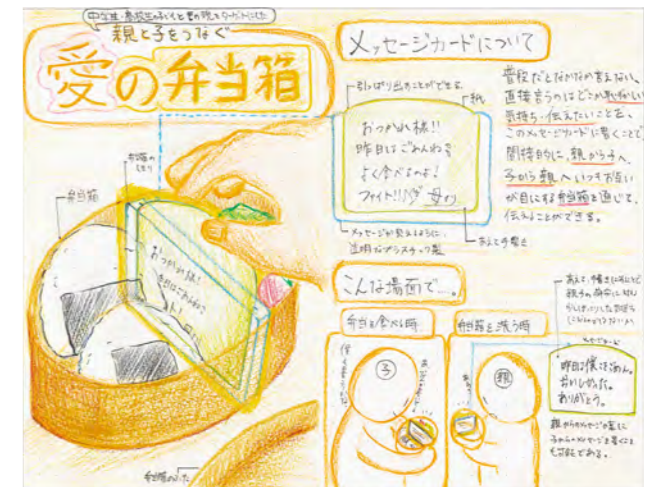 中学生・高校生の子どもと
親と子をつなぐ
愛の弁当箱
弁当箱
弁当箱の
おつかれ様!
昨日はごめんね
メッセージカードについて
引っぱり出すことができる。
紙
おつかれ様!!
昨日はごめんね
よく食べるのよ!
ファイト!! 母より
メッセージが見えるように、
透明なプラスチック製
あえて手書き
普段だとなかなか言えない、
直接言うのはどこか恥ずかしい
気持ち・伝えたいことを、
このメッセージカードに書くことで
間接的に、親から子へ、
子から親へいつもお互い
が目にする弁当箱を通じて、
伝えることができる。
こんな場面で…。
弁当を食べる時
弁当箱を洗う時
子
親
メッセージカード
昨日は僕もごめん。
おいしかった。
ありがとう。
親からのメッセージの裏に
子からのメッセージを書くことも
可能である。